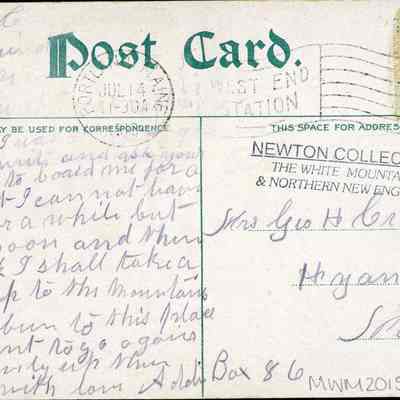 Post Card.
PORTLAND, MAINE
JUL 14
11-30 A
WEST END
STATION
AY BE USED FOR CORRESPONDENCE
THIS SPACE FOR ADDRES
NEWTON COLLEC
THE WHITE MOUNTA
& NORTHERN NEW ENG
and ask your
to board me for a
I cannot have
for a while but
soon and then
I shall take a
up to the Mountains
been to this place
want to go again
up then
with love Addie
Mrs Geo H Cr
Hyan
Box 86
MWM2015